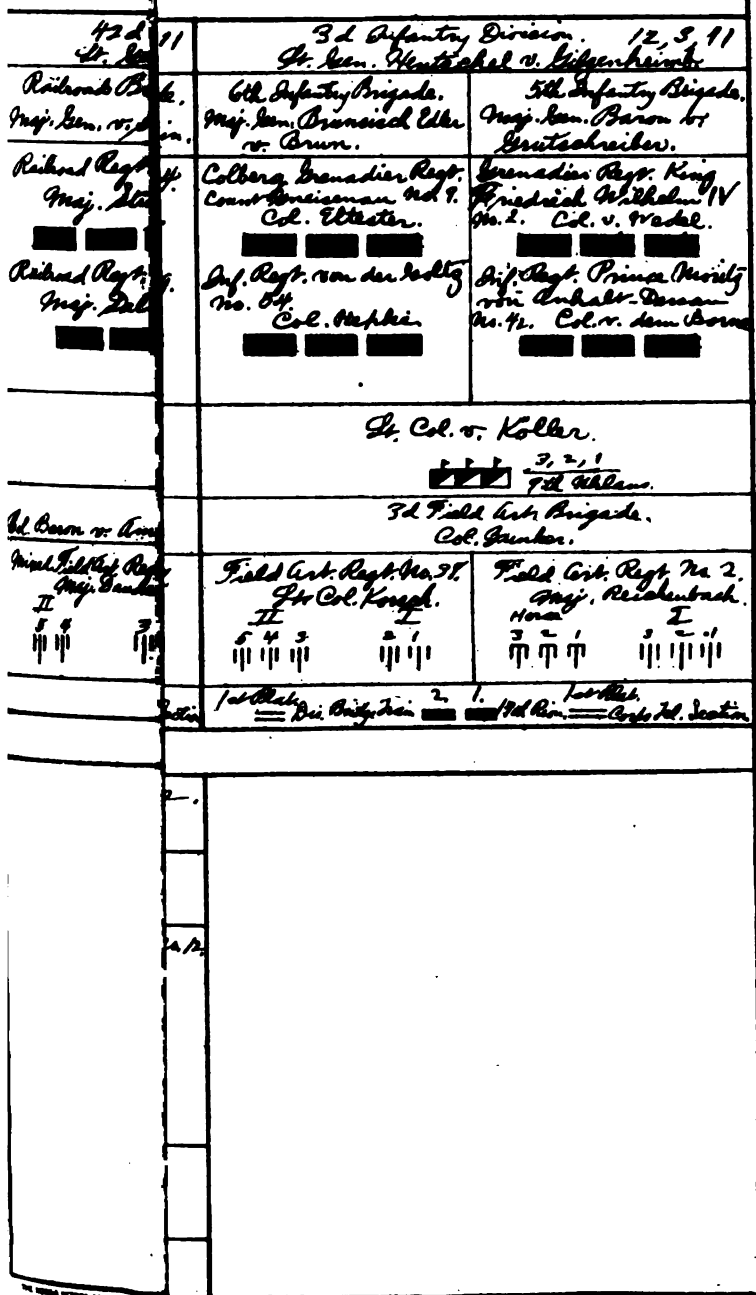 42d
Lt.
Railroads
Maj. Gen. v.
Railroad Regt
Maj.
Railroad Regt.
Maj.
Baron v.
Field Art. Reg
Maj.
II
5 4 3
11
3d Infantry Division. 12, 3, 11
Lt. Gen. Hentschel v. Gilgenheimb
6th Infantry Brigade.
Maj. Gen. Edler
v. Brun.
5th Infantry Brigade.
Maj. Gen. Baron v.
Grutschreiber.
Colberg Grenadier Regt.
Count Gneisenau No. 9.
Col. Eltester.
Grenadier Regt. King
Friedrich Wilhelm IV
No. 2. Col. v. Wedel.
Inf. Regt. von der Goltz
No. 54.
Col.
Inf. Regt. Prince Moritz
von Anhalt-Dessau
No. 42. Col. v. dem Borne
Lt. Col. v. Koller.
3, 2, 1
9th Uhlans.
3d Field Art. Brigade.
Col. Junker.
Field Art. Regt. No. 38.
Lt Col.
II I
5 4 3 2 1
Field Art. Regt No 2.
Maj. Reichenbach.
Horse I
3 2 1 3 2 1
1st Plat. Div. Bridge Train 2. 1. Pion. 1st Plat. Corps Tel. Section
2.